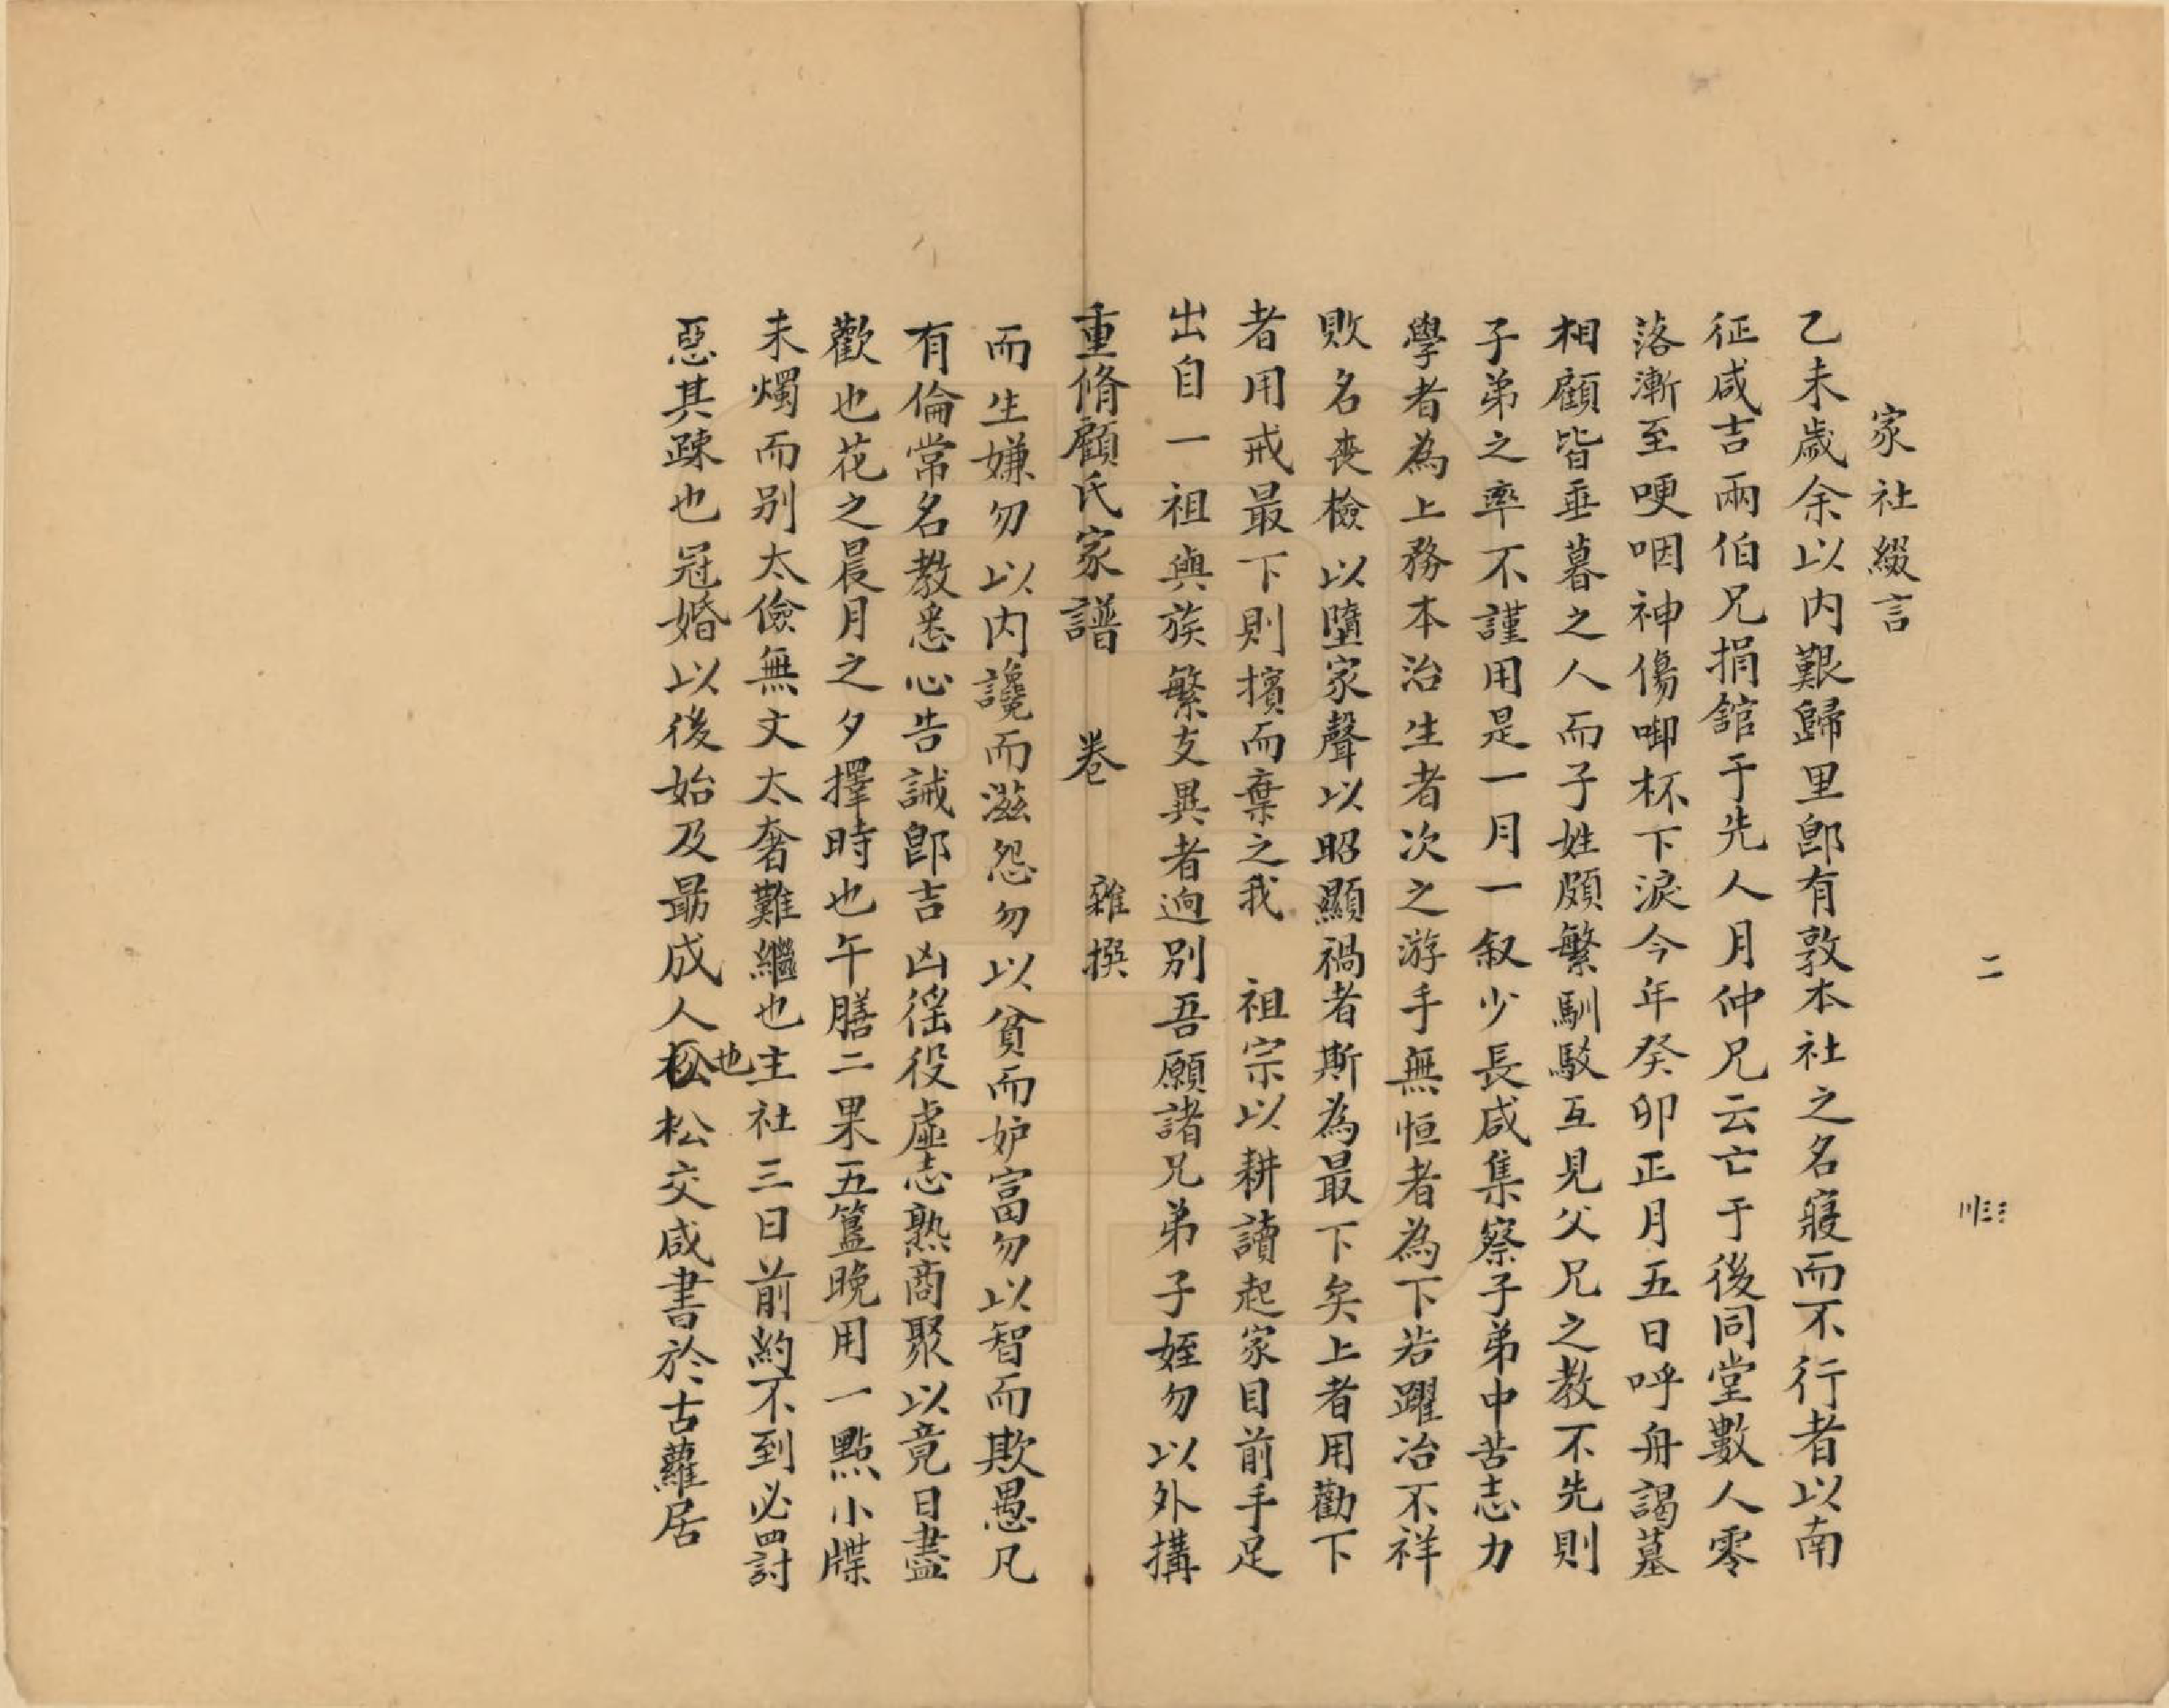 二
家社綴言
乙未歲余以内艱歸里卽有敦本社之名寢而不行者以南
征咸吉兩伯兄捐舘于先人月仲兄云亡于後同堂數人零
落漸至哽咽神傷啣杯下淚今年癸卯正月五日呼舟謁墓
相顧皆垂暮之人而子姓頗繁馴駁互見父兄之教不先則
子弟之率不謹用是一月一叙少長咸集察子弟中苦志力
學者為上務本治生者次之游手無恒者為下若躍冶不祥
敗名喪檢以墮家聲以昭顯禍者斯為最下矣上者用勸下
者用戒最下則擯而棄之我 祖宗以耕讀起家目前手足
出自一祖與族繁支異者逈别吾願諸兄弟子姪勿以外搆
重脩顧氏家譜 卷 雜撰
而生嫌勿以内讒而滋怨勿以貧而妒富勿以智而欺愚凡
有倫常名教悉心告誡卽吉凶徭役虛志熟商聚以竟日盡
歡也花之晨月之夕擇時也午膳二果五簋晚用一點小牒
未燭而别太儉無文太奢難繼也主社三日前約不到必罰
惡其踈也冠婚以後始及勗成人也松交咸書於古蘿居